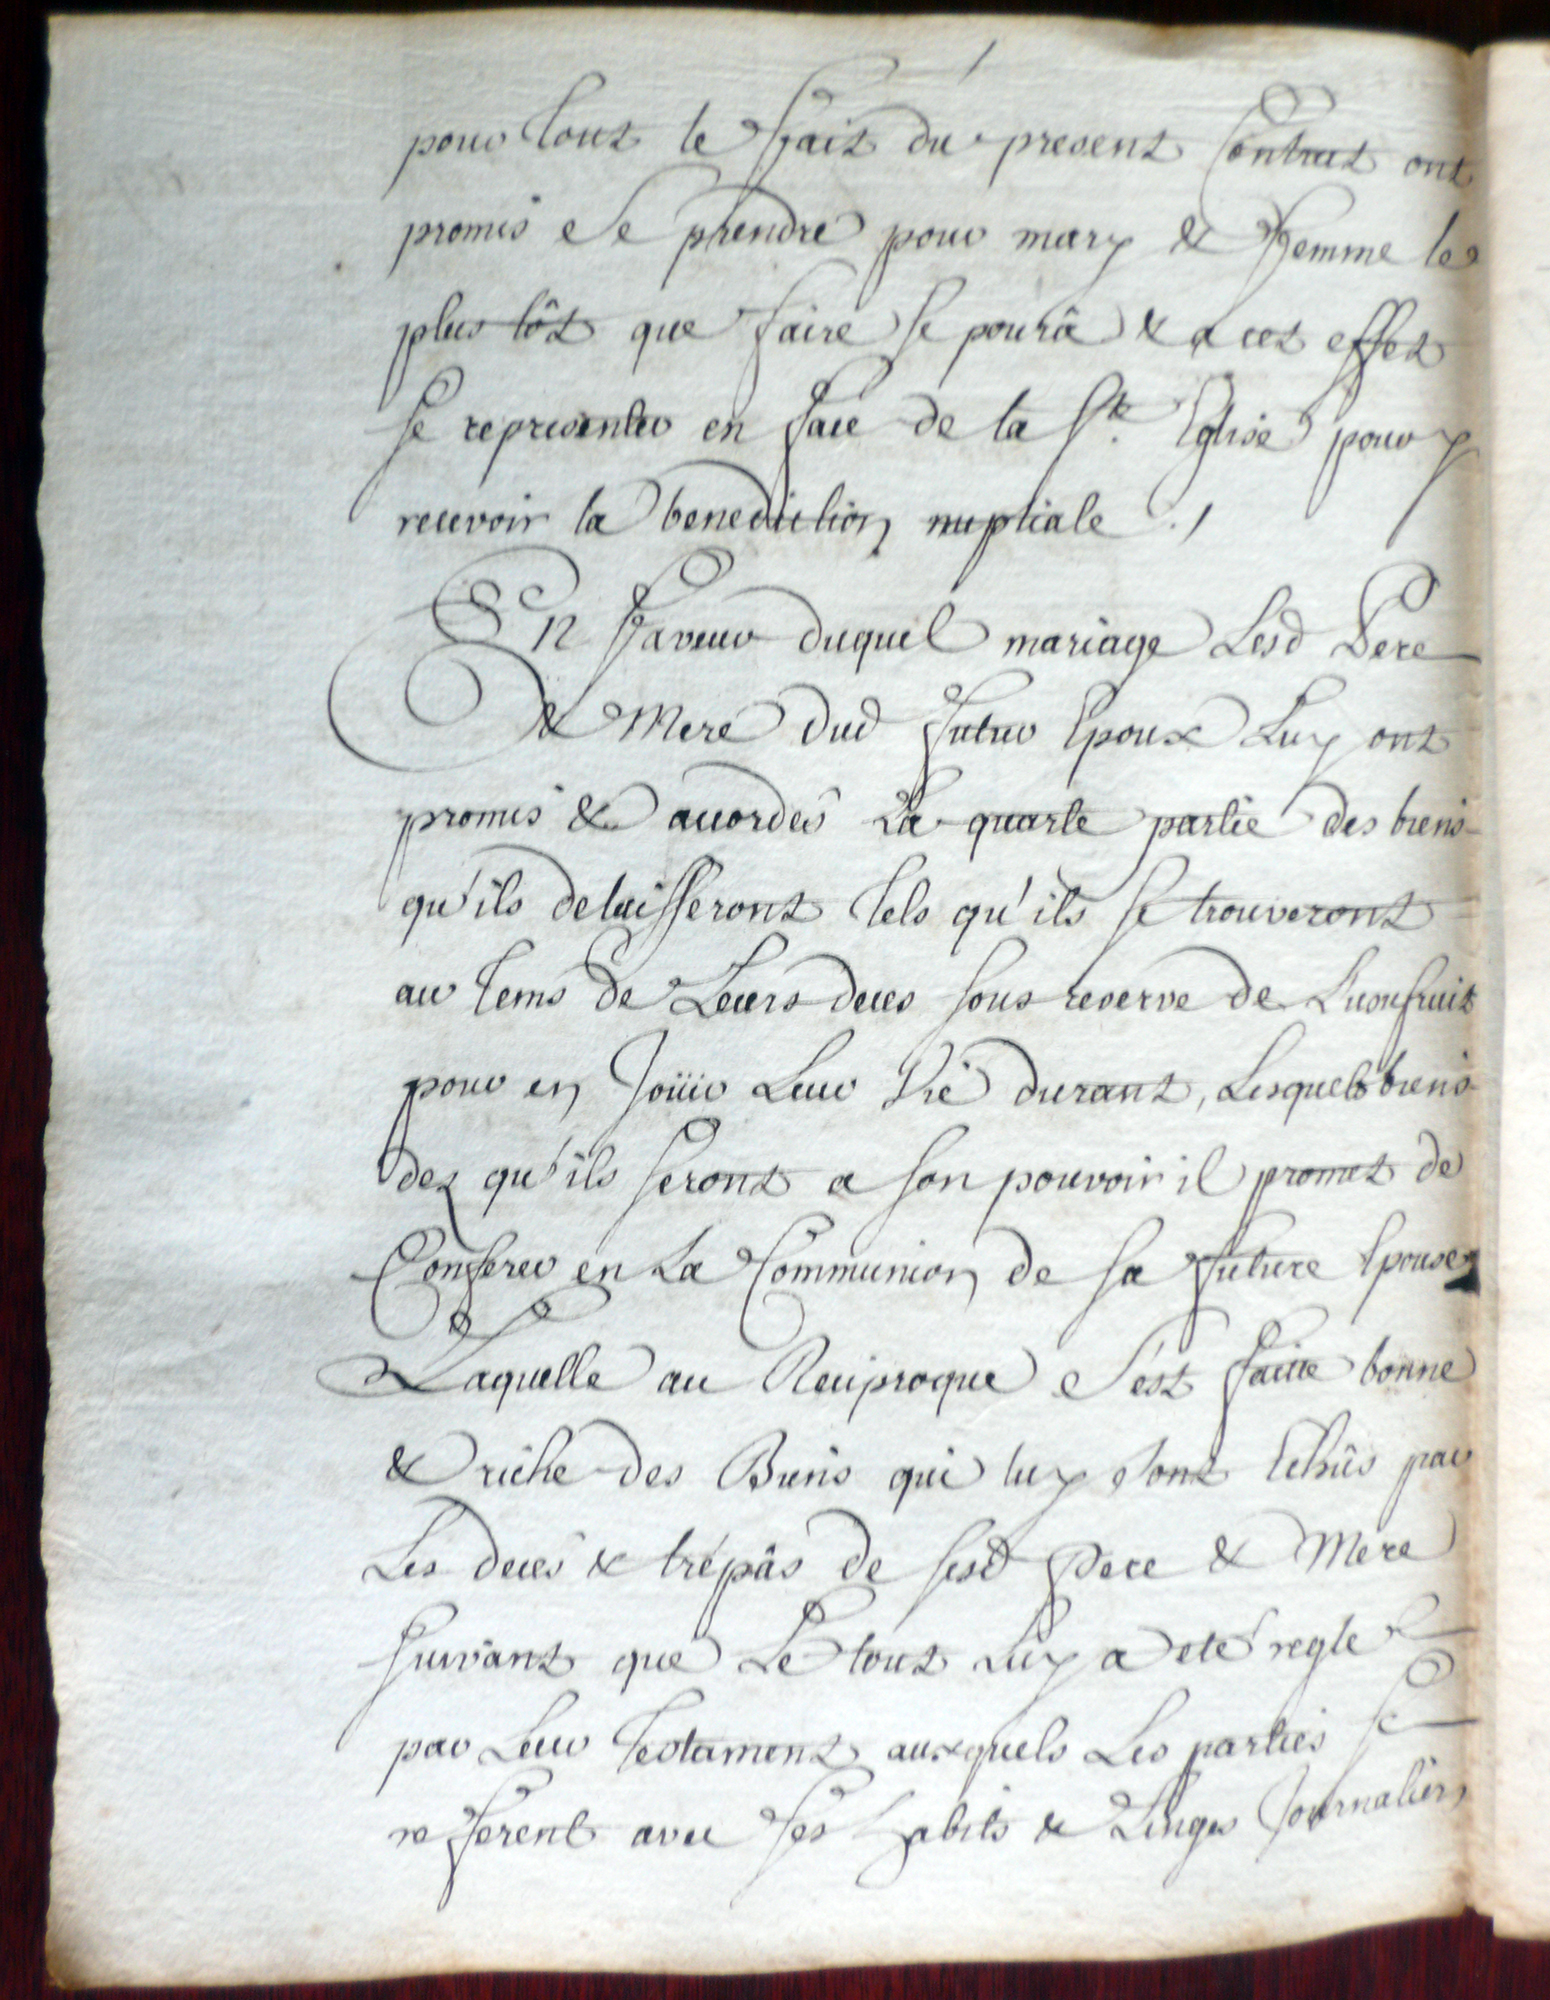 pour tout le fait du present Contrat ont
promis de se prendre pour mary & femme le
plus tôt que faire se pourâ & a cet effet
se representer en face de la Ste. Eglise pour y
recevoir la benediction nuptiale ./
En faveur duquel mariage Lesd Pere
& Mere dud futur Epoux Luy ont
promis & acordés La quarte partie des biens
qu'ils delaisseront tels qu'ils se trouveront
au tems de Leurs deces sous reserve de L'usufruit
pour en Joüir Leur Vie durant, Lesquels biens
dez qu'ils seront a son pouvoir il promet de
Conferer en La Communion de sa future Epouse
Laquelle au Reciproque s'est faitte bonne
& riche des Biens qui luy sont Echûs par
Les deces & trépâs de sesd Pere & Mere
suivant que Le tout Luy a eté reglé
par Leur Testament auxquels Les parties se
refferent avec ses habits & Linges Journaliers